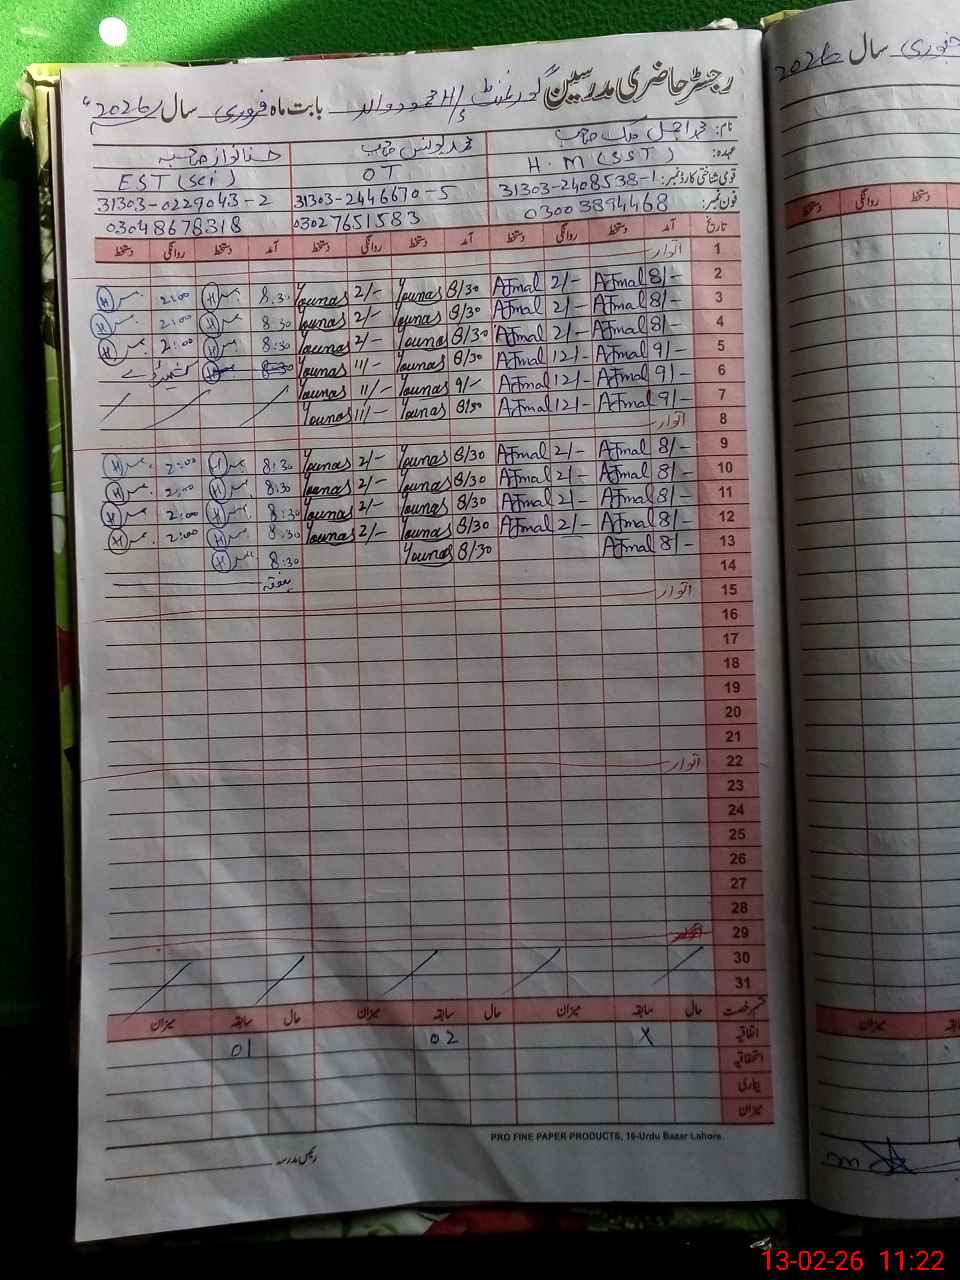 رجسٹر حاضری مدرسین گورنمنٹ H/S محمود والہ بابت ماہ فروری سال 2026ء
نام: محمد اجمل ملک صاحب محمد یونس صاحب حنا نواز صاحبہ
عہدہ: H.M (SST) OT EST (Sci)
قومی شناختی کارڈ نمبر: 31303-2408538-1 31303-2446670-5 31303-0229043-2
فون نمبر: 03003894468 03027651583 03048678318
تاریخ آمد دستخط روانگی دستخط آمد دستخط روانگی دستخط آمد دستخط روانگی دستخط
1 اتوار
2 8/- Ajmal 2/- Ajmal 8/30 Younas 2/- Younas 8:30 H 2:00 H
3 8/- Ajmal 2/- Ajmal 8/30 Younas 2/- Younas 8:30 H 2:00 H
4 8/- Ajmal 2/- Ajmal 8/30 Younas 2/- Younas 8:30 H 2:00 H
5 9/- Ajmal 12/- Ajmal 8/30 Younas 11/- Younas 8:30
6 9/- Ajmal 12/- Ajmal 9/- Younas 11/- Younas
7 9/- Ajmal 12/- Ajmal 8/30 Younas 11/- Younas
8 اتوار
9 8/- Ajmal 2/- Ajmal 8/30 Younas 2/- Younas 8:30 H 2:00 H
10 8/- Ajmal 2/- Ajmal 8/30 Younas 2/- Younas 8:30 H 2:00 H
11 8/- Ajmal 2/- Ajmal 8/30 Younas 2/- Younas 8:30 H 2:00 H
12 8/- Ajmal 2/- Ajmal 8/30 Younas 2/- Younas 8:30 H 2:00 H
13 8/- Ajmal 8/30 Younas 8:30 H
14 ہفتہ
15 اتوار
16
17
18
19
20
21
22 اتوار
23
24
25
26
27
28
29 اتوار
30
31
قسم رخصت حال سابقہ میزان حال سابقہ میزان حال سابقہ میزان
اتفاقیہ X 02 01
استحقاقیہ
بیماری
میزان
PRO FINE PAPER PRODUCTS, 16-Urdu Bazar Lahore.
رئیس مدرسہ
فروری سال 2026
دستخط روانگی دستخط
میزان
13-02-26 11:22